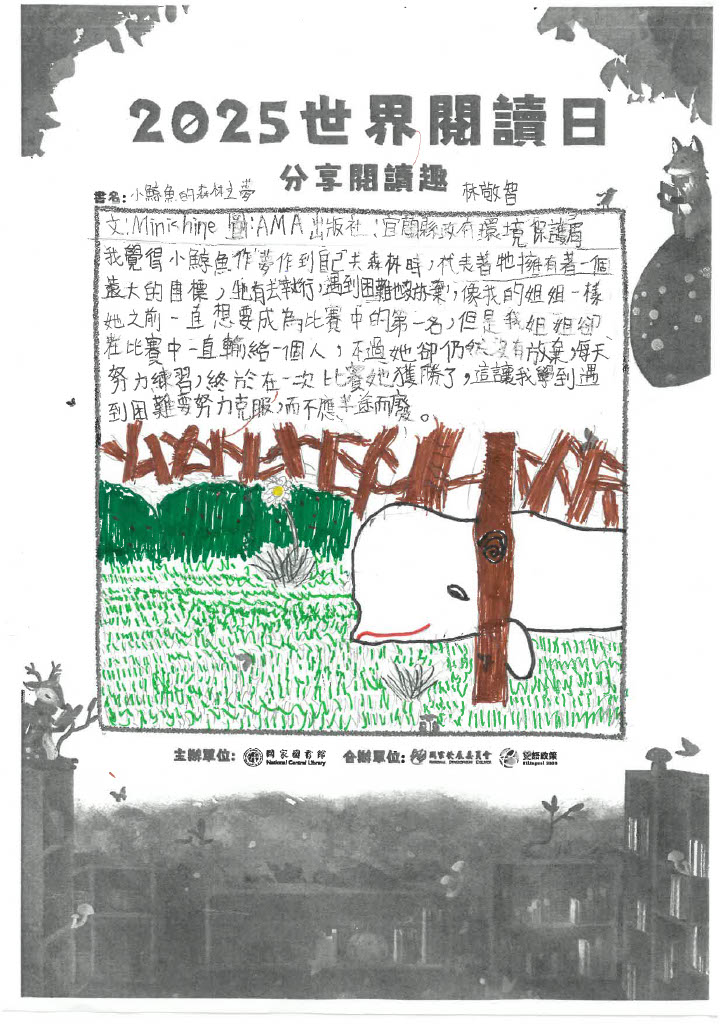 2025世界閱讀日
分享閱讀趣
書名:小鯨魚的森林之夢 林敬智
文:Minishine 圖:AMA 出版社:宜蘭縣政府環境保護局
我覺得小鯨魚作夢作到自己去森林時,代表著牠擁有著一個
遠大的目標,牠有去執行,遇到困難也沒放棄,像我的姐姐一樣
她之前一直想要成為比賽中的第一名,但是我姐姐卻
在比賽中一直輸給一個人,不過她卻仍然沒有放棄,每天
努力練習,終於在一次比賽她獲勝了,這讓我學到遇
到困難要努力克服,而不應半途而廢。
主辦單位: 國家圖書館 合辦單位: 國家發展委員會 雙語政策
National Central Library NATIONAL DEVELOPMENT COUNCIL Bilingual 2030